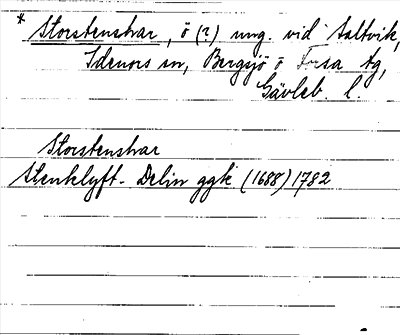 * Storstenshar, ö (?) ung. vid Saltvik,
Idenors sn, Bergsjö o Forsa tg,
Gävleb. l.
Storstenshar
Stenklyft. Delin ggk (1688) 1782